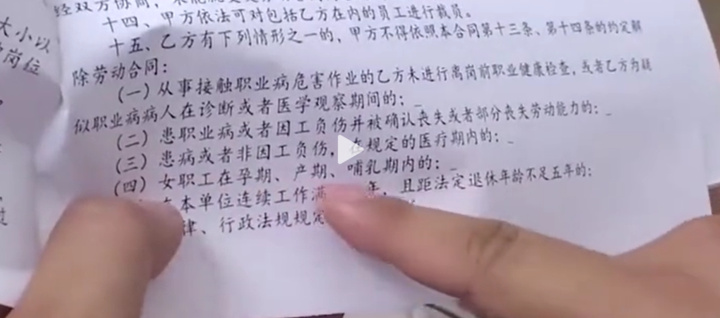 经双方协同，
十四、甲方依法可对包括乙方在内的员工进行裁员。
大小以
十五、乙方有下列情形之一的，甲方不得依照本合同第十三条、第十四条的约定解
岗位
除劳动合同：
（一）从事接触职业病危害作业的乙方未进行离岗前职业健康检查，或者乙方为疑
似职业病病人在诊断或者医学观察期间的；
（二）患职业病或者因工负伤并被确认丧失或者部分丧失劳动能力的；
（三）患病或者非因工负伤，在规定的医疗期内的；
（四）女职工在孕期、产期、哺乳期内的；
本单位连续工作满 年，且距法定退休年龄不足五年的；
律、行政法规规定